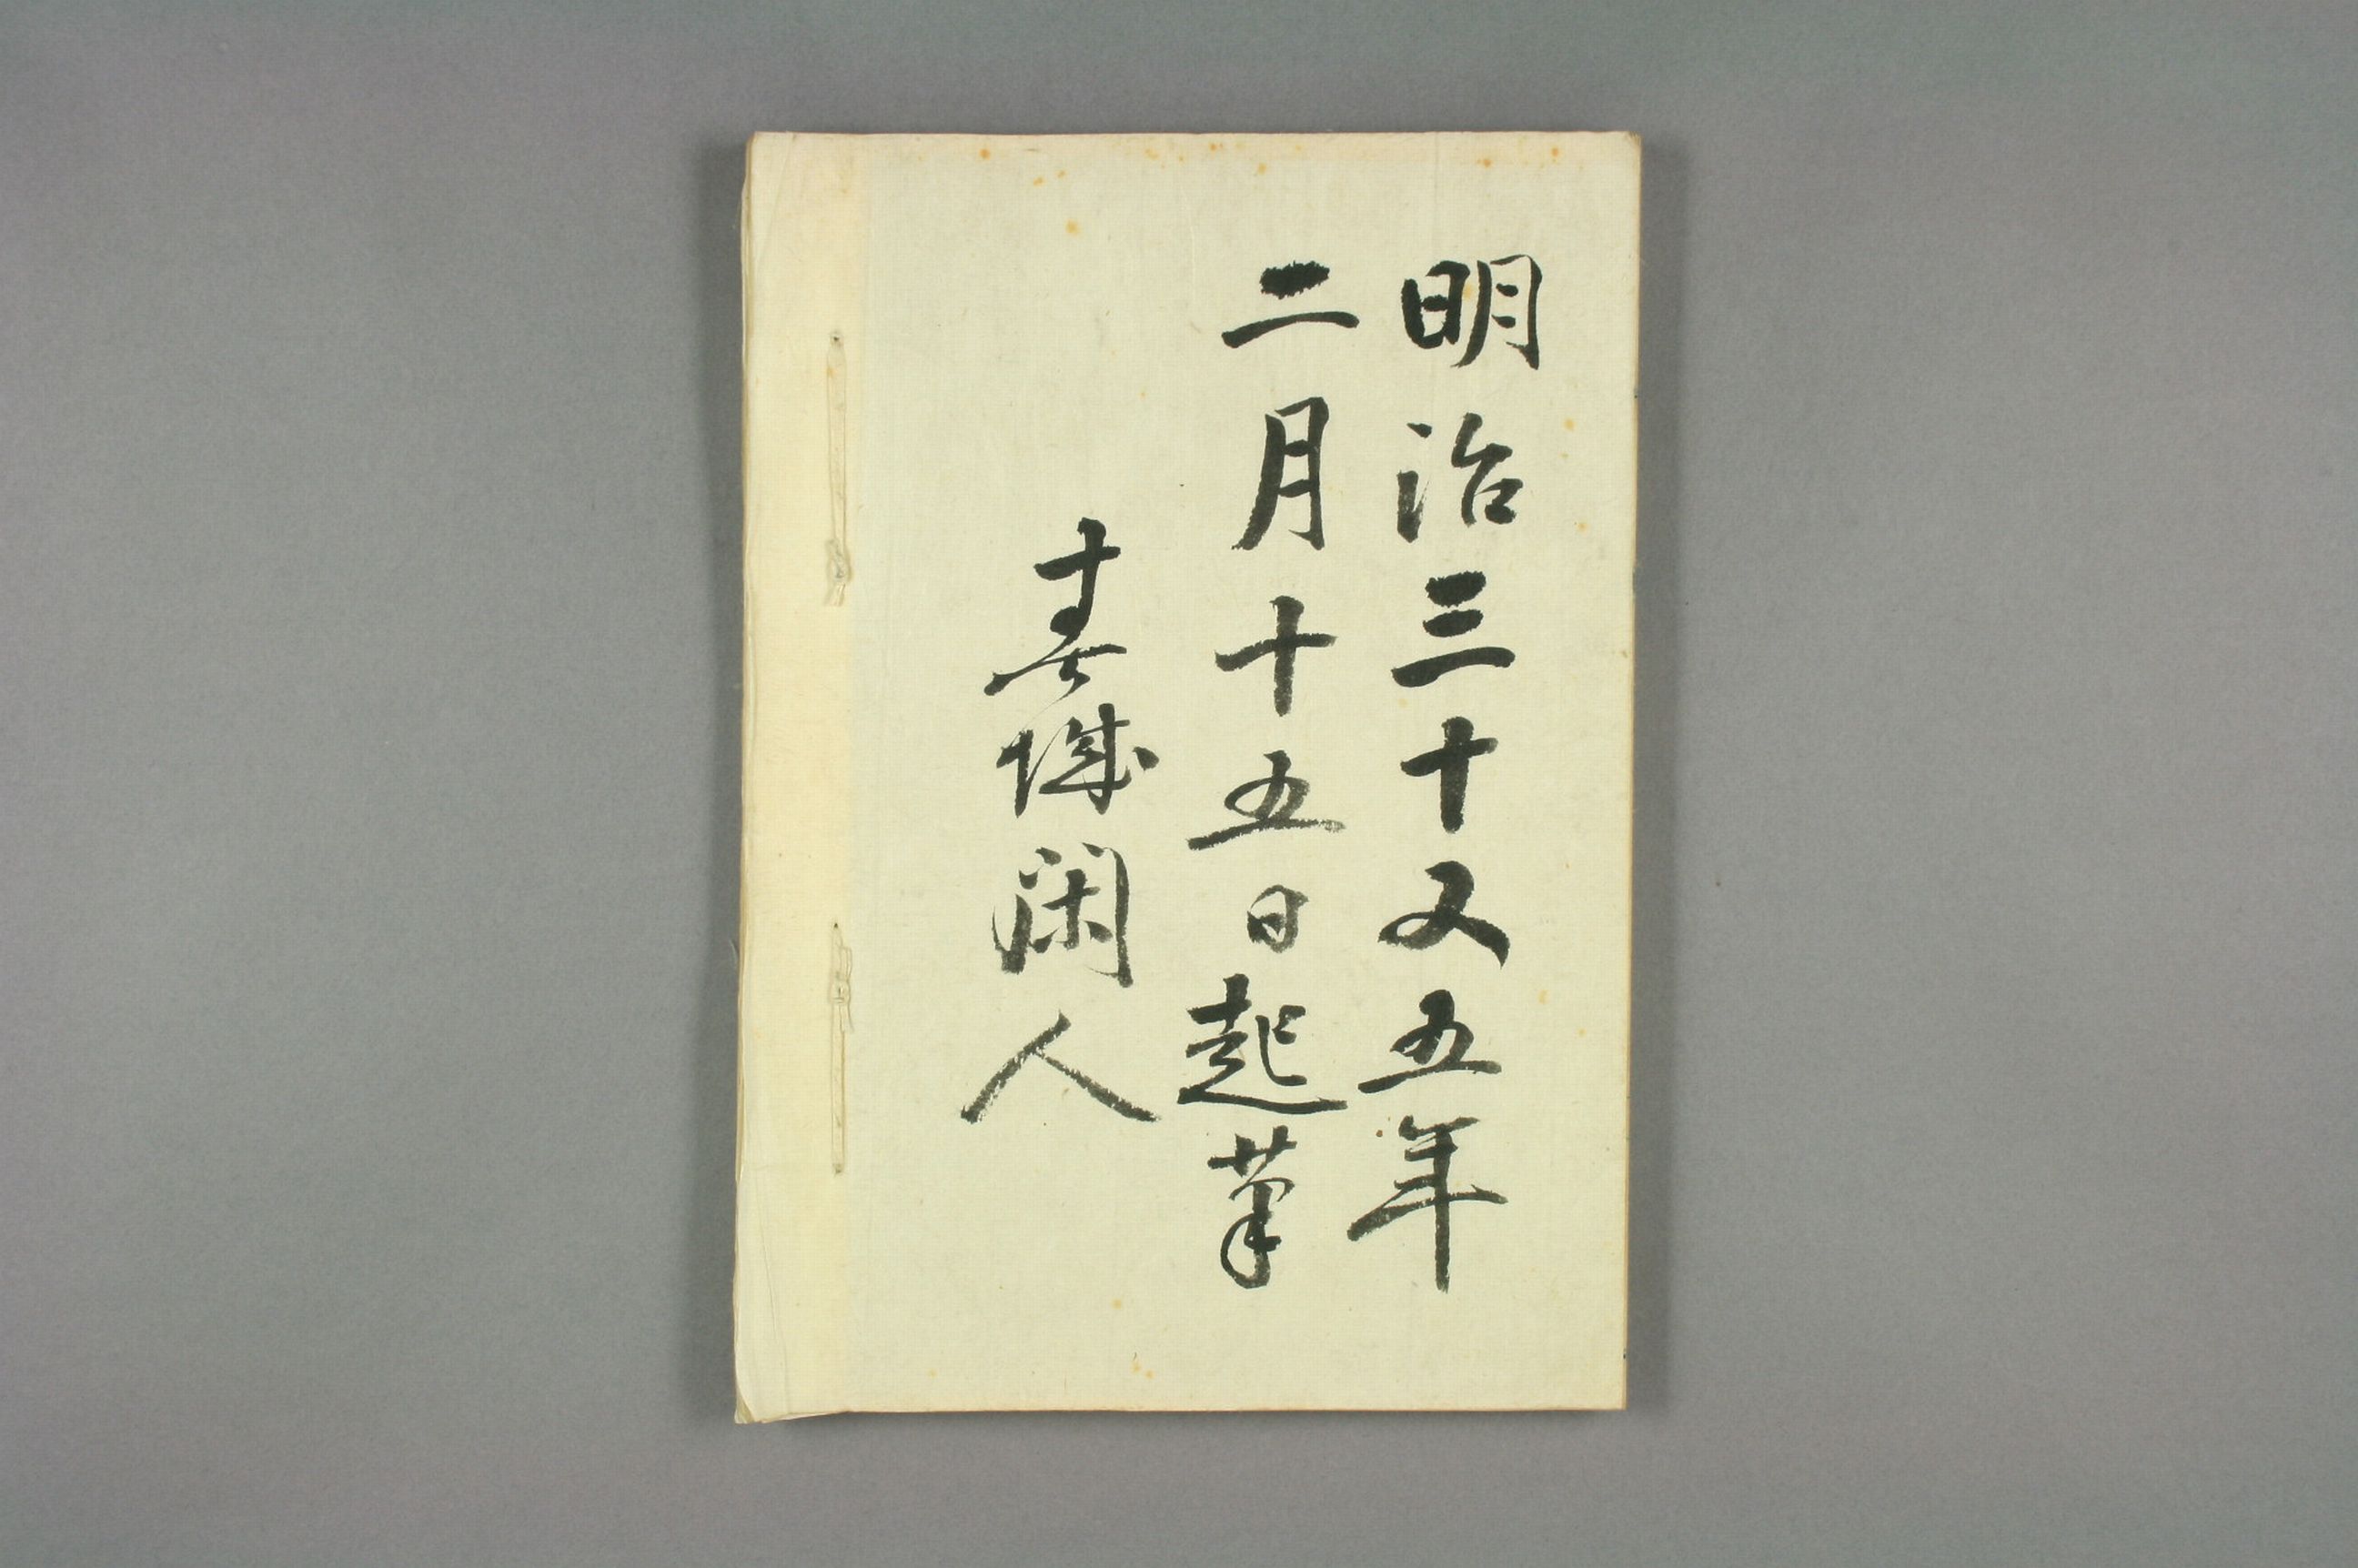 明治三十又五年
二月十五日起筆
春城閑人